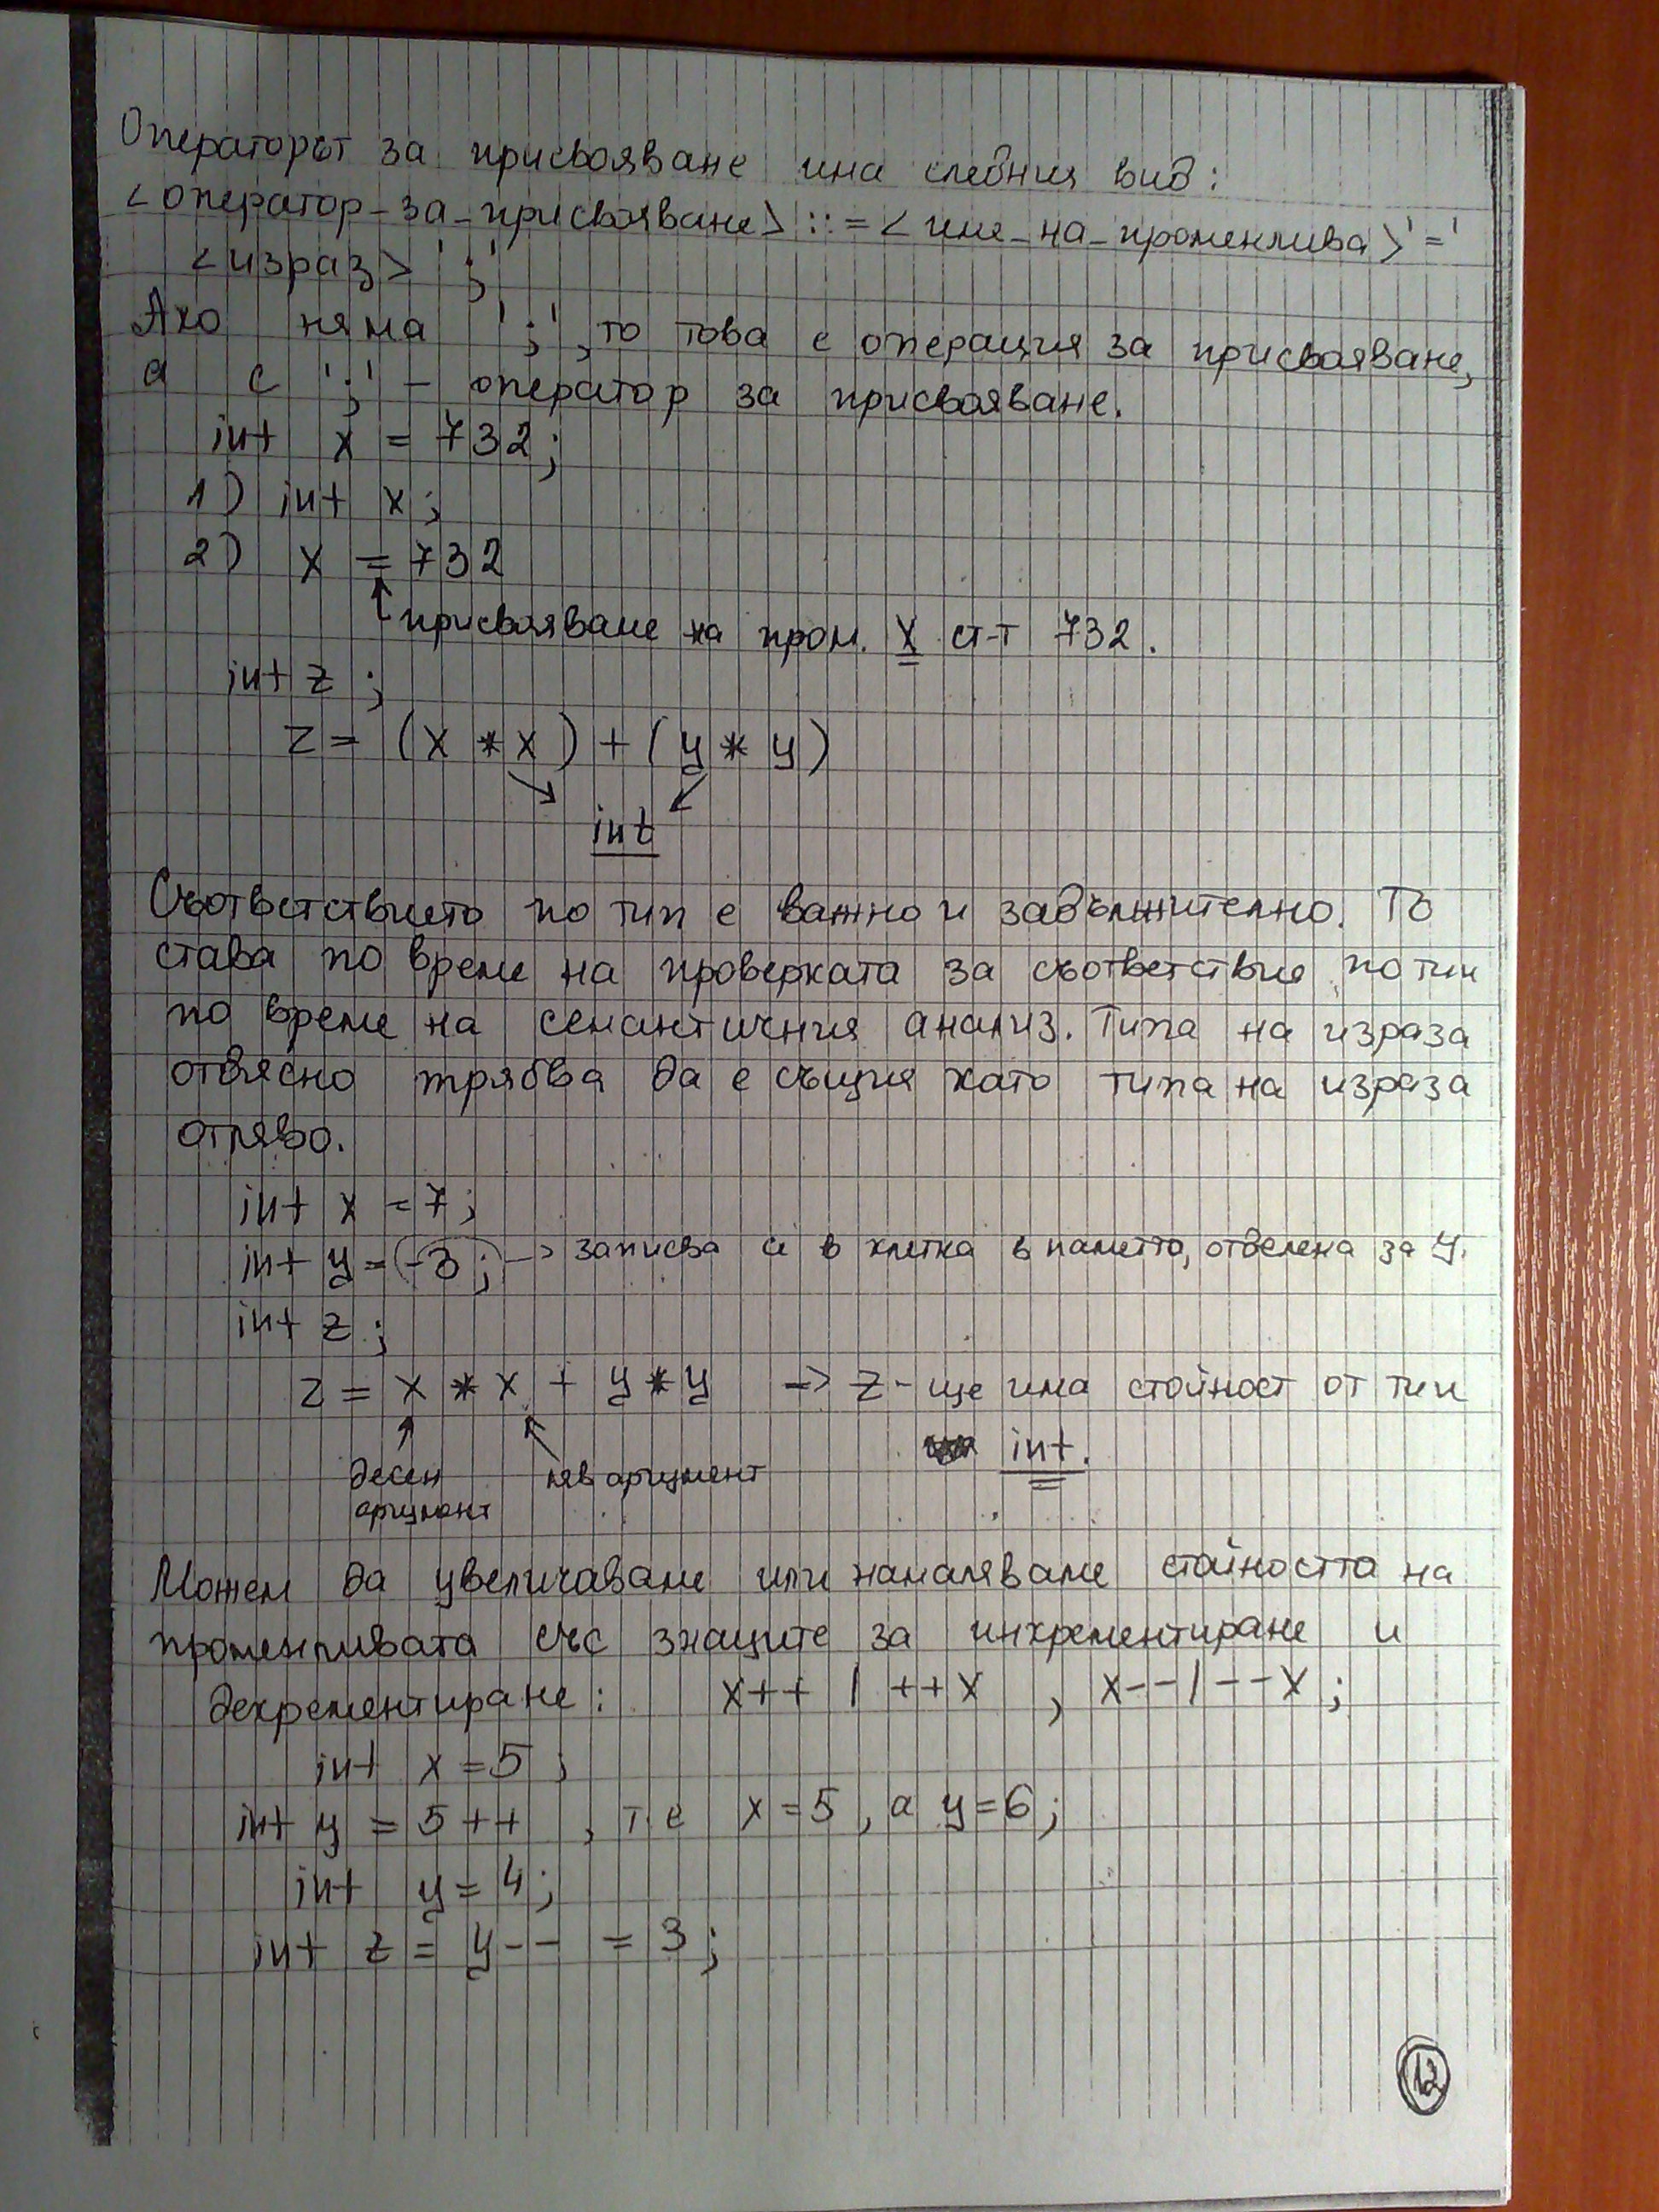 Операторът за присвояване има следния вид:
<оператор_за_присвояване> ::= <име_на_променлива> '='
<израз> ';'
Ако няма ';', то това е операция за присвояване,
а с ';' - оператор за присвояване.
int x = 732;
1) int x;
2) x = 732
присвояваме на пром. x ст-т 732.
int z ;
z = (x * x) + (y * y)
int
Съответствието по тип е важно и задължително. То
става по време на проверката за съответствие по тип
по време на семантичния анализ. Типа на израза
отдясно трябва да е същия като типа на израза
отляво.
int x = 7;
int y = (-3;) -> записва се в клетка в паметта, отделена за y.
int z ;
z = x * x + y * y -> z - ще има стойност от тип
int.
десен аргумент
ляв аргумент
Можем да увеличаваме или намаляваме стойността на
променливата със знаците за инкрементиране и
декрементиране: x++ | ++x , x-- | --x ;
int x = 5 ;
int y = 5++ , т.е x = 5 , а y = 6 ;
int y = 4;
int z = y-- = 3 ;
12